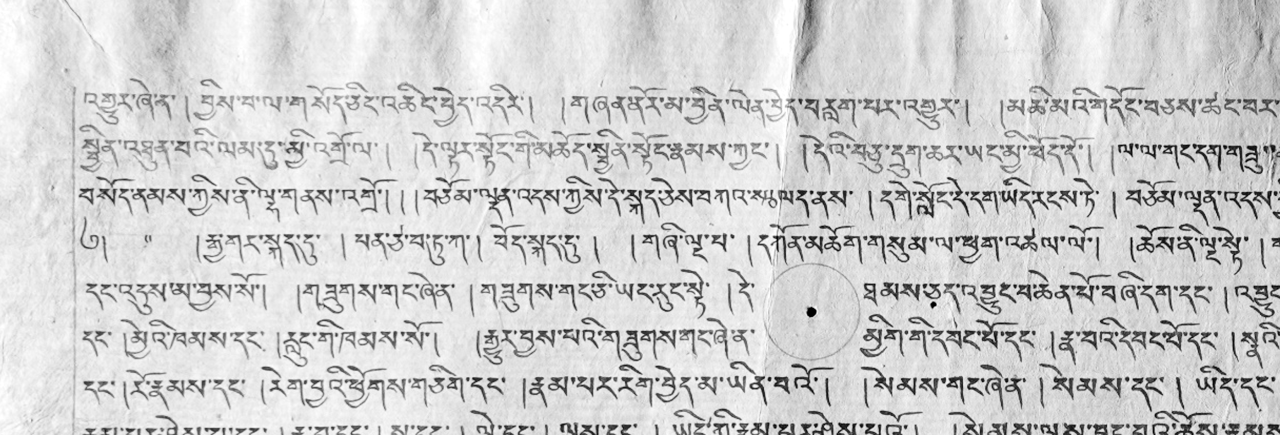 འགྱུར་ཞེ་ན་ །བྱིས་པ་ལ་ག སོད་ཅིང་འཆིང་བྱེད་འདིར། །གཞན་ནོར་མ་བྱིན་ལེན་བྱེད་བརླག་པར་འགྱུར་། །མཆི་མའི་གདོང་བཅས་ཚང་བར་
སྦྱིན་འཐུན་བའི་ལམ་དུ་མྱི་འགྲོ་ལ་། །དེ་ལྟར་སྟོང་གི་མཆོད་སྦྱིན་སྟོང་རྣམས་ཀྱང་། །དེའི་བཅུ་དྲུག་ཆར་ཡང་མྱི་ཕོད་དོ་། །ལ་ལ་གང་དག་
བསོད་ནམས་ཀྱིས་ནི་ལྷ་གནས་འགྲོ་།།། བཅོམ་ལྡན་འདས་ཀྱིས་དེ་སྐད་ཅེས་བཀའ་སྩལད་ནས་ །དགེ་སློང་དེ་དག་ཡོད་རངས་ཏེ་ །བཅོམ་ལྡན་འདས་
༧། །རྒྱ་གར་སྐད་དུ་ །པན་ཙ་བ་ཏུ་ཀ་། བོད་སྐད་དུ་ །གཞི་ལྔ་པ་ །དཀོན་མཆོག་གསུམ་ལ་ཕྱག་འཚལ་ལོ་། །ཆོས་ནི་ལྔ་སྟེ་།
དང་འདུས་མ་བྱས་སོ་། །གཟུགས་གང་ཞེ་ན་ །གཟུགས་གང་ཅི་ཡང་རུང་སྟེ་ །དེ་ ཐམས་ཅད་འབྱུང་བ་ཆེན་པོ་བཞི་དག་དང་ །འབྱུང་
དང་ །མྱེའི་ཁམས་དང་ །རླུང་གི་ཁམས་སོ་། །རྒྱུར་བྱས་པའི་གཟུགས་གང་ཞེ་ན་ མྱིག་གི་དབང་པོ་དང་ །རྣ་བའི་དབང་པོ་དང་ །སྣའི་
དང་ །རོ་རྣམས་དང་ །རེག་བྱའི་ཕྱོགས་གཅིག་དང་ །རྣམ་པར་རིག་བྱེད་མ་ཡིན་བའོ་། །སེམས་གང་ཞེ་ན་ །སེམས་དང་ །ཡིད་དང་